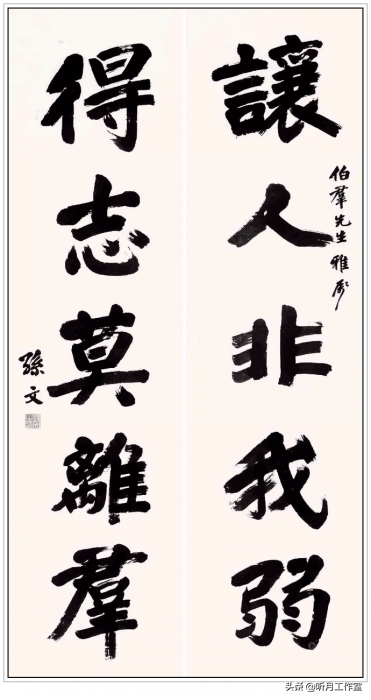 讓人非我弱
伯羣先生雅屬
得志莫離羣
孫文
头条@听月工作室